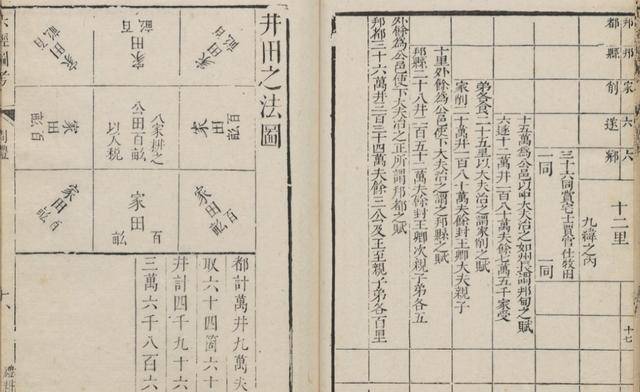 邦邦家六六
都縣削遂鄉
十二里
九緯之內
三十六同賞宅士賈官仕牧田
一同
一同
十五萬為公邑以中大夫治之如州長謂邦甸之賦
六遂十二萬井一百八十萬夫餘七萬五千家受
弟各食二十五里以大夫治之謂家削之賦
家削二十萬井一百八十萬夫餘封王卿大夫親子
十里外餘為公邑使下大夫治之謂之邦縣之賦
邦縣二十八井二百五十二萬夫餘封王卿次親子弟各五
外餘為公邑使下大夫治之正所謂邦都之賦
邦都三十六萬井三百二十四萬夫餘三公及王至親子弟各百里
十七
井田之法圖
家田百畝
家田百畝
家田百畝
家田百畝
八家耕之
公田百畝
以入稅
家田百畝
家田百畝
家田百畝
家田百畝
都計萬井九萬夫
取六十四箇六十
井計四千九十六
三萬六千八百六
六經圖考
周禮